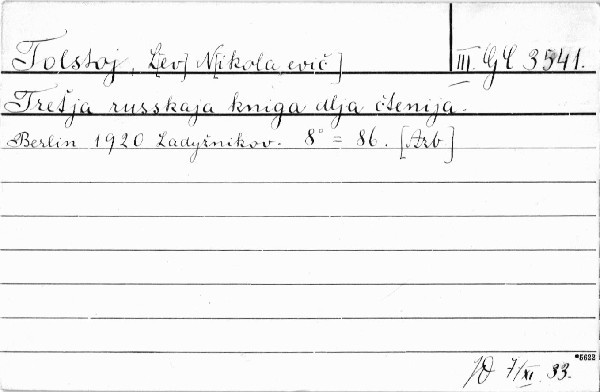 Tolstoj, L[ev] N[ikolaevič]
III. GČ 3541.
Tretja russkaja kniga dlja čtenija.
Berlin 1920 Ladyžnikov. 8° = 86. [Arb]
7/XI. 33.
*5622